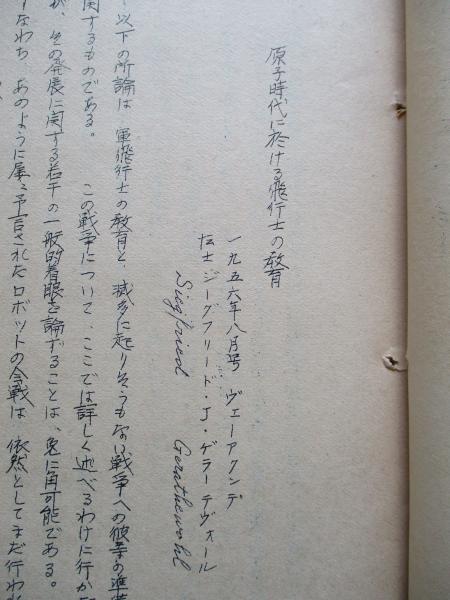 原子時代に於ける飛行士の教育
一九五六年八月号 ヴェーアクンデ
伝士 ジーグフリード・J・ゲラーテヴォール
Siegfried Gerathewohl
以下の所論は 軍飛行士の教育と、滅多に起りそうもない戦争への彼等の準
関するものである。 この戦争について、ここでは詳しく述べるわけに行か
が、その発展に関する若干の一般的着眼を論ずることは、兎に角可能である。
なわち あのように屡々予言されたロボットの会戦は 依然としてまだ行われ